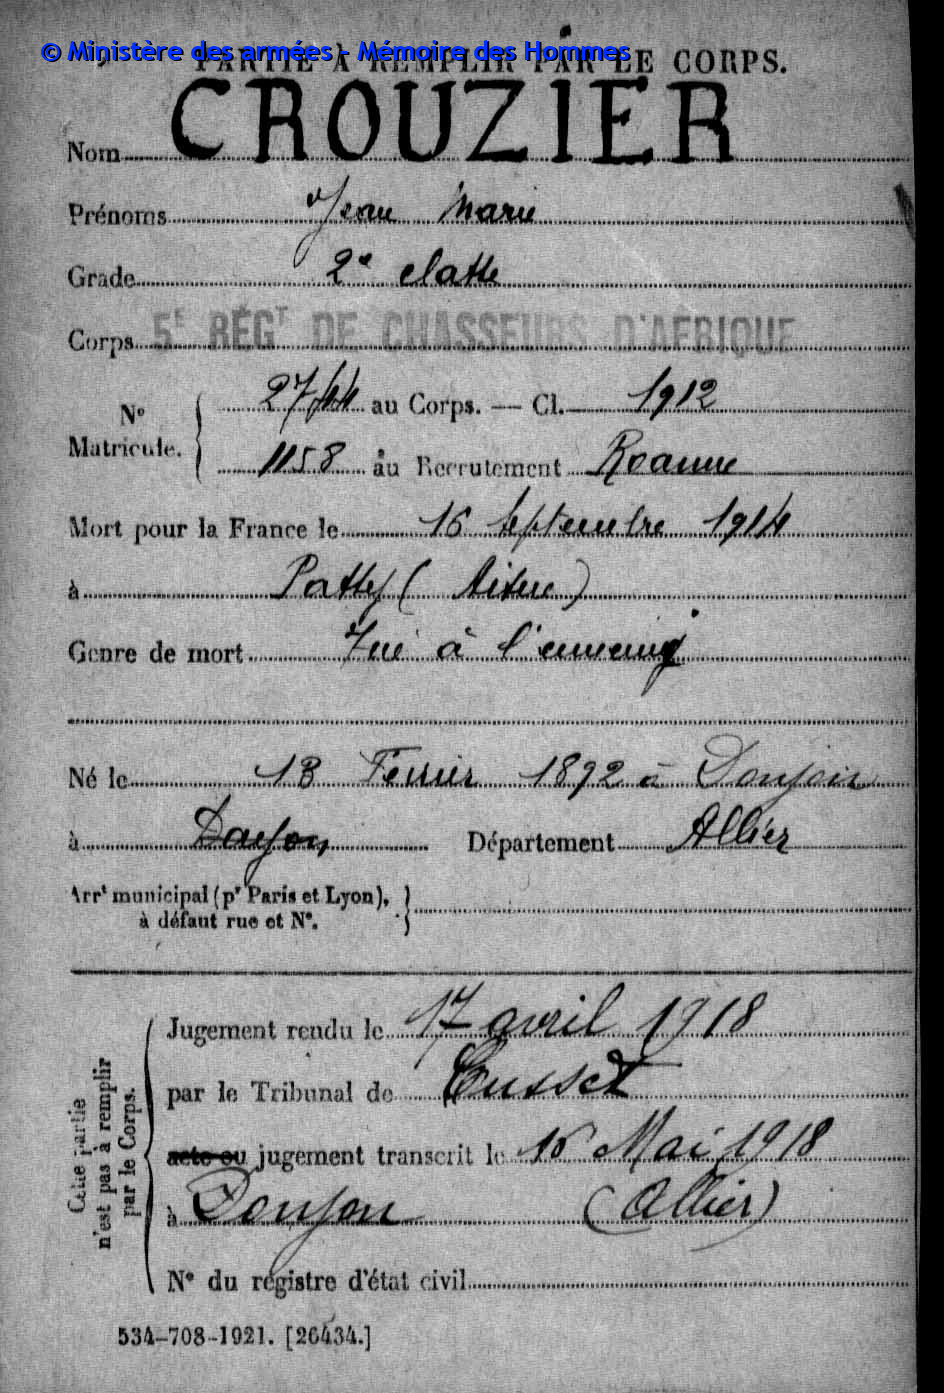 © Ministère des armées - Mémoire des Hommes
PARTIE À REMPLIR PAR LE CORPS.
Nom CROUZIER
Prénoms Jean Marie
Grade 2e classe
Corps 5E RÉGT DE CHASSEURS D'AFRIQUE
No Matricule. { 2744 au Corps. — Cl. 1912
1158 au Recrutement Roanne
Mort pour la France le 16 septembre 1914
à Passy ( Aisne )
Genre de mort Tué à l'ennemi
Né le 13 Février 1892 à Donjon
à Donjon Département Allier
Arrt municipal (pr Paris et Lyon), }
à défaut rue et No.
Cette partie n'est pas à remplir par le Corps.
Jugement rendu le 17 avril 1918
par le Tribunal de Cusset
acte ou jugement transcrit le 16 Mai 1918
à Donjon (Allier)
No du registre d'état civil
534-708-1921. [26434.]